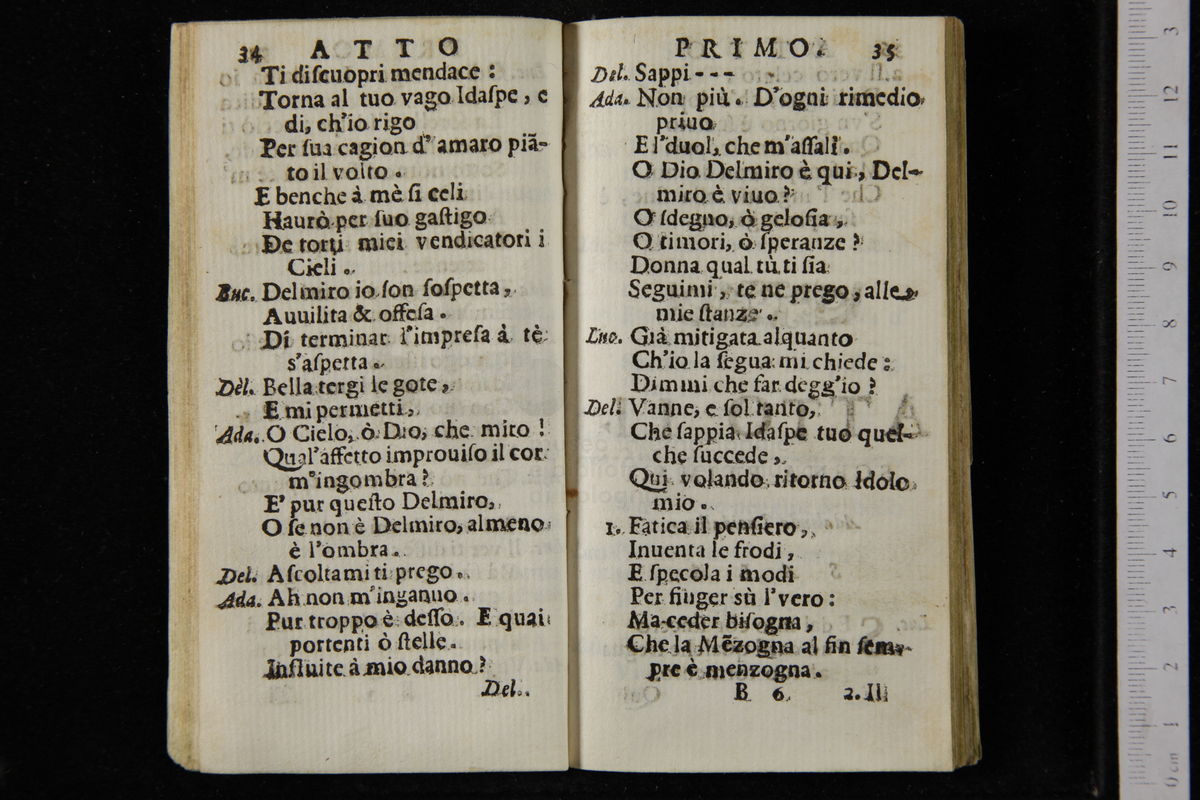 34 ATTO
Ti diſcuopri mendace :
Torna al tuo vago Idaſpe, e
di, ch'io rigo
Per ſua cagion d' amaro piã-
to il volto .
E benche à mè ſi celi
Haurò per ſuo gaſtigo
De torti miei vendicatori i
Cieli .
Luc. Delmiro io ſon ſoſpetta,
Auuilita & offeſa .
Di terminar l'impreſa à tè
s'aſpetta .
Del. Bella tergi le gote,
E mi permetti,
Ada. O Cielo, ò Dio, che miro !
Qual'affetto improuiſo il cor
m'ingombra ?
E' pur queſto Delmiro,
O ſe non è Delmiro, almeno
è l'ombra .
Del. Aſcoltami ti prego .
Ada. Ah non m'inganno .
Pur troppo è deſſo . E quai
portenti ò ſtelle .
Influite à mio danno ?
Del.
PRIMO. 35
Del. Sappi - - -
Ada. Non più . D'ogni rimedio
priuo
E l'duol, che m'aſſalì .
O Dio Delmiro è qui, Del-
miro è viuo ?
O ſdegno, ò geloſia,
O timori, ò ſperanze ?
Donna qual tù ti ſia
Seguimi, te ne prego, alle
mie ſtanze .
Luc. Già mitigata alquanto
Ch'io la ſegua mi chiede :
Dimmi che far degg'io ?
Del. Vanne, e ſol tanto,
Che ſappia Idaſpe tuo quel-
che ſuccede,
Qui volando ritorno Idolo
mio .
1. Fatica il penſiero,
Inuenta le frodi,
E ſpecola i modi
Per finger sù l'vero :
Ma ceder biſogna,
Che la Mẽzogna al fin ſem-
pre è menzogna .
B 6 2. Il